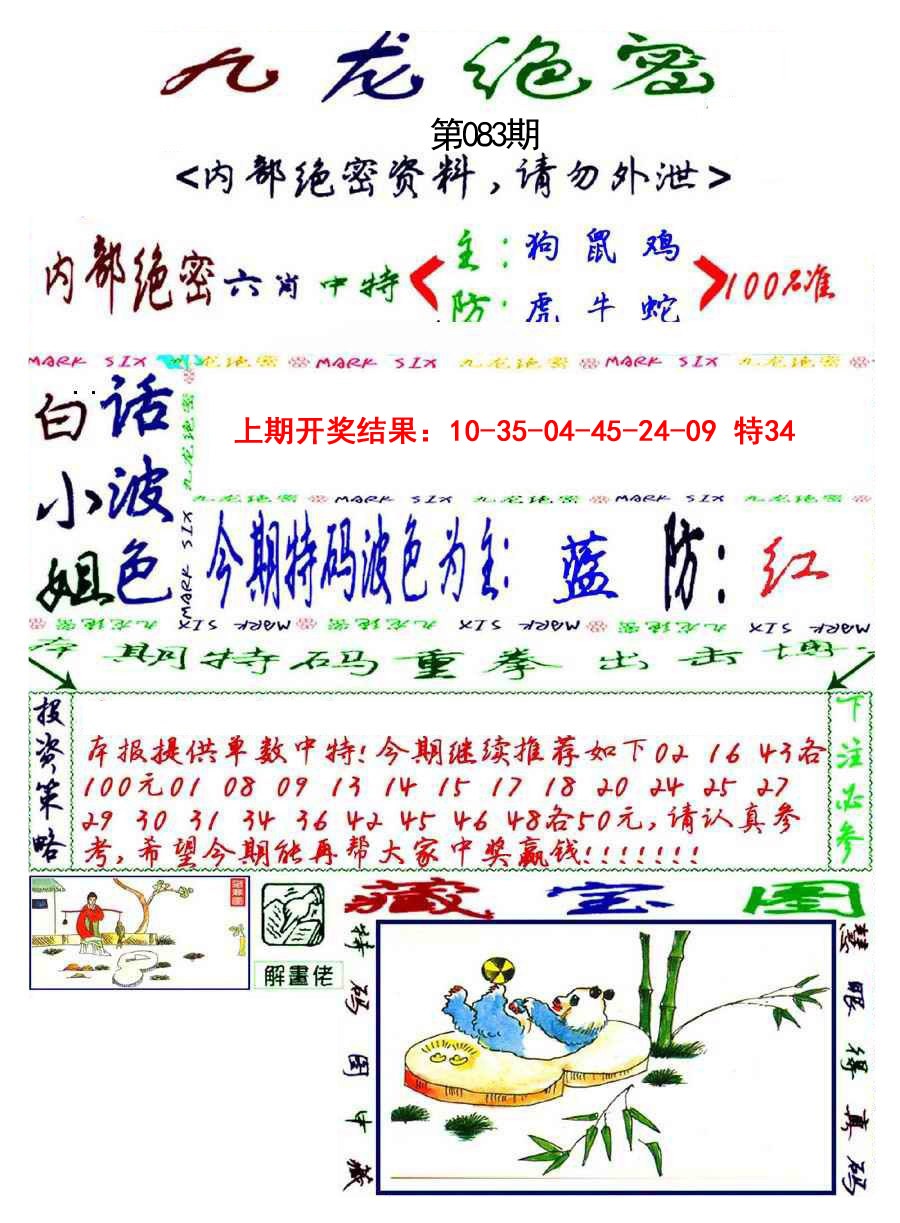 九龙绝密
第083期
<内部绝密资料，请勿外泄>
内部绝密六肖中特
主：狗 鼠 鸡
防：虎 牛 蛇
100%准
MARK SIX 九龙绝密 MARK SIX 九龙绝密 MARK SIX 九龙绝密
白话小波姐色
九龙绝密 MARK SIX
上期开奖结果：10-35-04-45-24-09 特34
九龙绝密 MARK SIX 九龙绝密 MARK SIX 九龙绝密
今期特码波色为主：蓝 防：红
九龙绝密 MARK SIX 九龙绝密 MARK SIX 九龙绝密 MARK SIX
本期特码重拳出击
投资策略
本报提供单数中特！今期继续推荐如下02 16 43各
100元01 08 09 13 14 15 17 18 20 24 25 27
29 30 31 34 36 42 45 46 48各50元，请认真参
考，希望今期能再帮大家中奖赢钱！！！！！！！
下注必参
解畫佬
藏宝图
特码图中藏
慧眼得真码